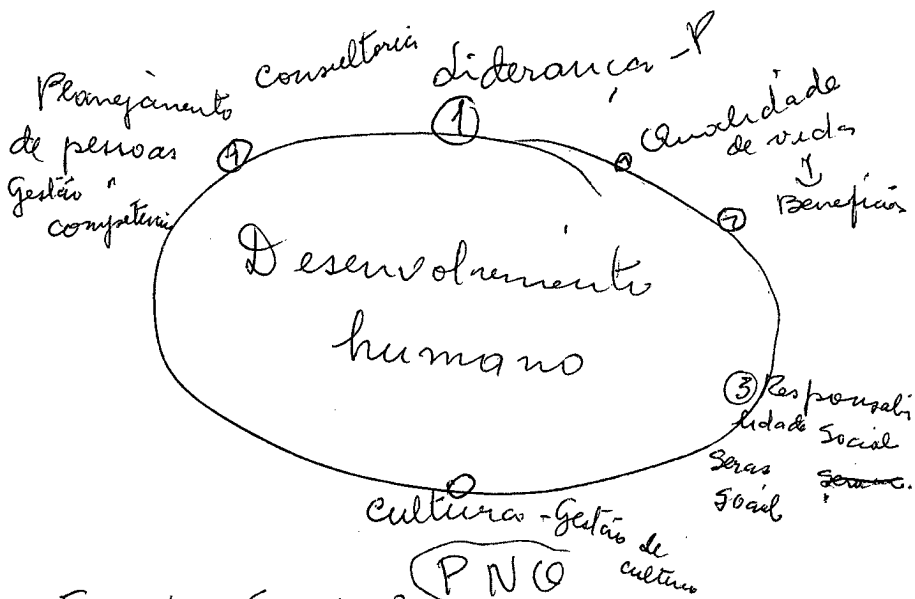 Planejamento
de pessoas
Gestão "
Consultoria
Liderança - P
1
Qualidade
de vida
Benefícios
Desenvolvimento
humano
3 Responsabi
lidade Social
Social
Cultura - Gestão de
cultura
PNQ